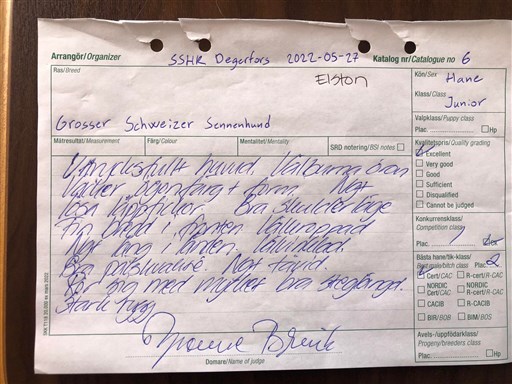 Arrangör/Organizer SSHK Degerfors 2022-05-27 Katalog nr/Catalogue no 6
Ras/Breed
Elston
Kön/Sex Hane
Klass/Class Junior
Grosser Schweizer Sennenhund
Valpklass/Puppy class
Plac. Hp
Mätresultat/Measurement Färg/Colour Mentalitet/Mentality SRD notering/BSI notes
Kvalitetspris/Quality grading
Excellent
Very good
Good
Sufficient
Disqualified
Cannot be judged
huvud. Välburna öron
ögonfärg + form. Ngt
lösa läppar. Bra skulderläge
Fin bredd i fronten.
Ngt lång i länden.
Bra pälskvalité. Ngt
Rör sig med mycket bra steglängd.
Stark rygg
Konkurrensklass/
Competition class
Plac. 1
Bästa hane/tik-klass/
Best male/bitch class Plac. 2
Cert/CAC R-cert/R-CAC
NORDIC Cert/CAC NORDIC R-Cert/R-CAC
CACIB R-CACIB
BIR/BOB BIM/BOS
Avels-/uppfödarklass/
Progeny/breeders class
Plac. Hp
Domare/Name of judge